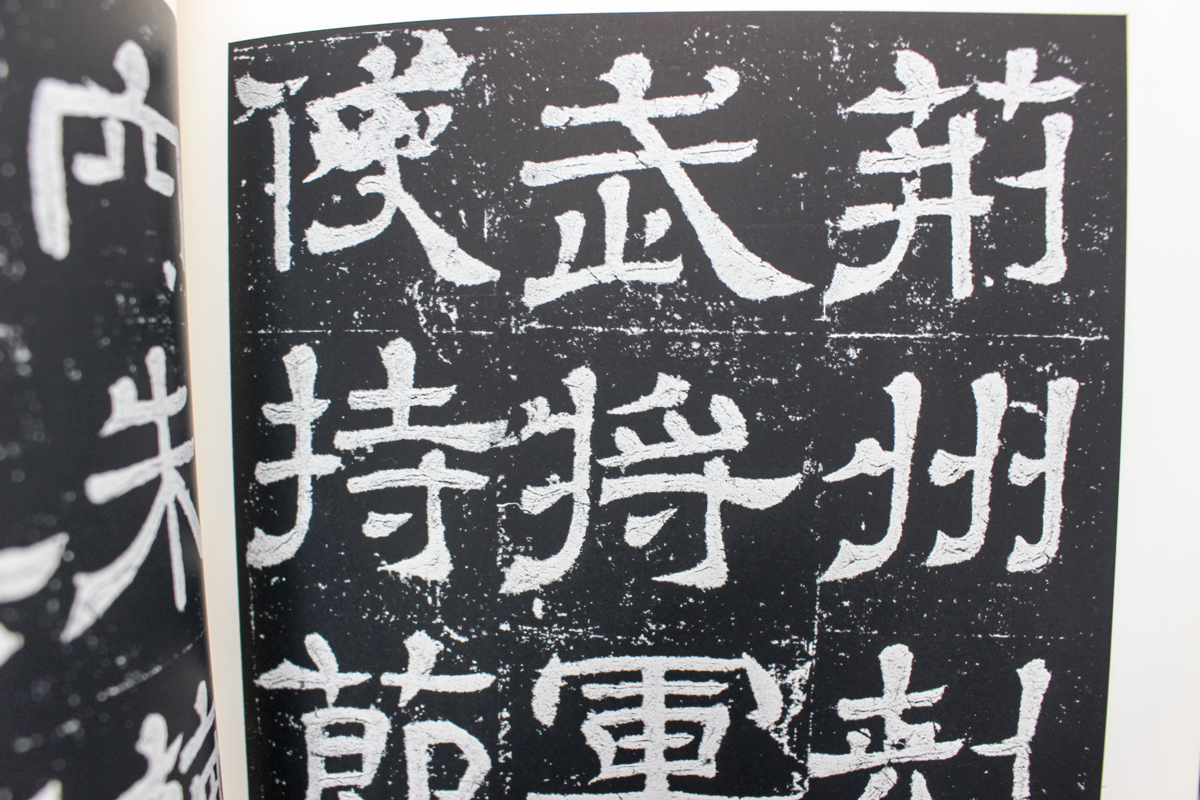 荊州刺
武將軍
使持節